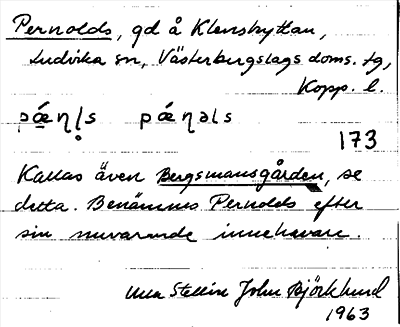 Pernolds, gd å Klenshyttan,
Ludvika sn, Västerbergslags doms. tg,
Kopp. l.
pǽ̠ɳḷs pǽɳəls
173
Kallas även Bergsmansgården, se
detta. Benämnes Pernolds efter
sin nuvarande innehavare.
Stellin John Björklund
1963